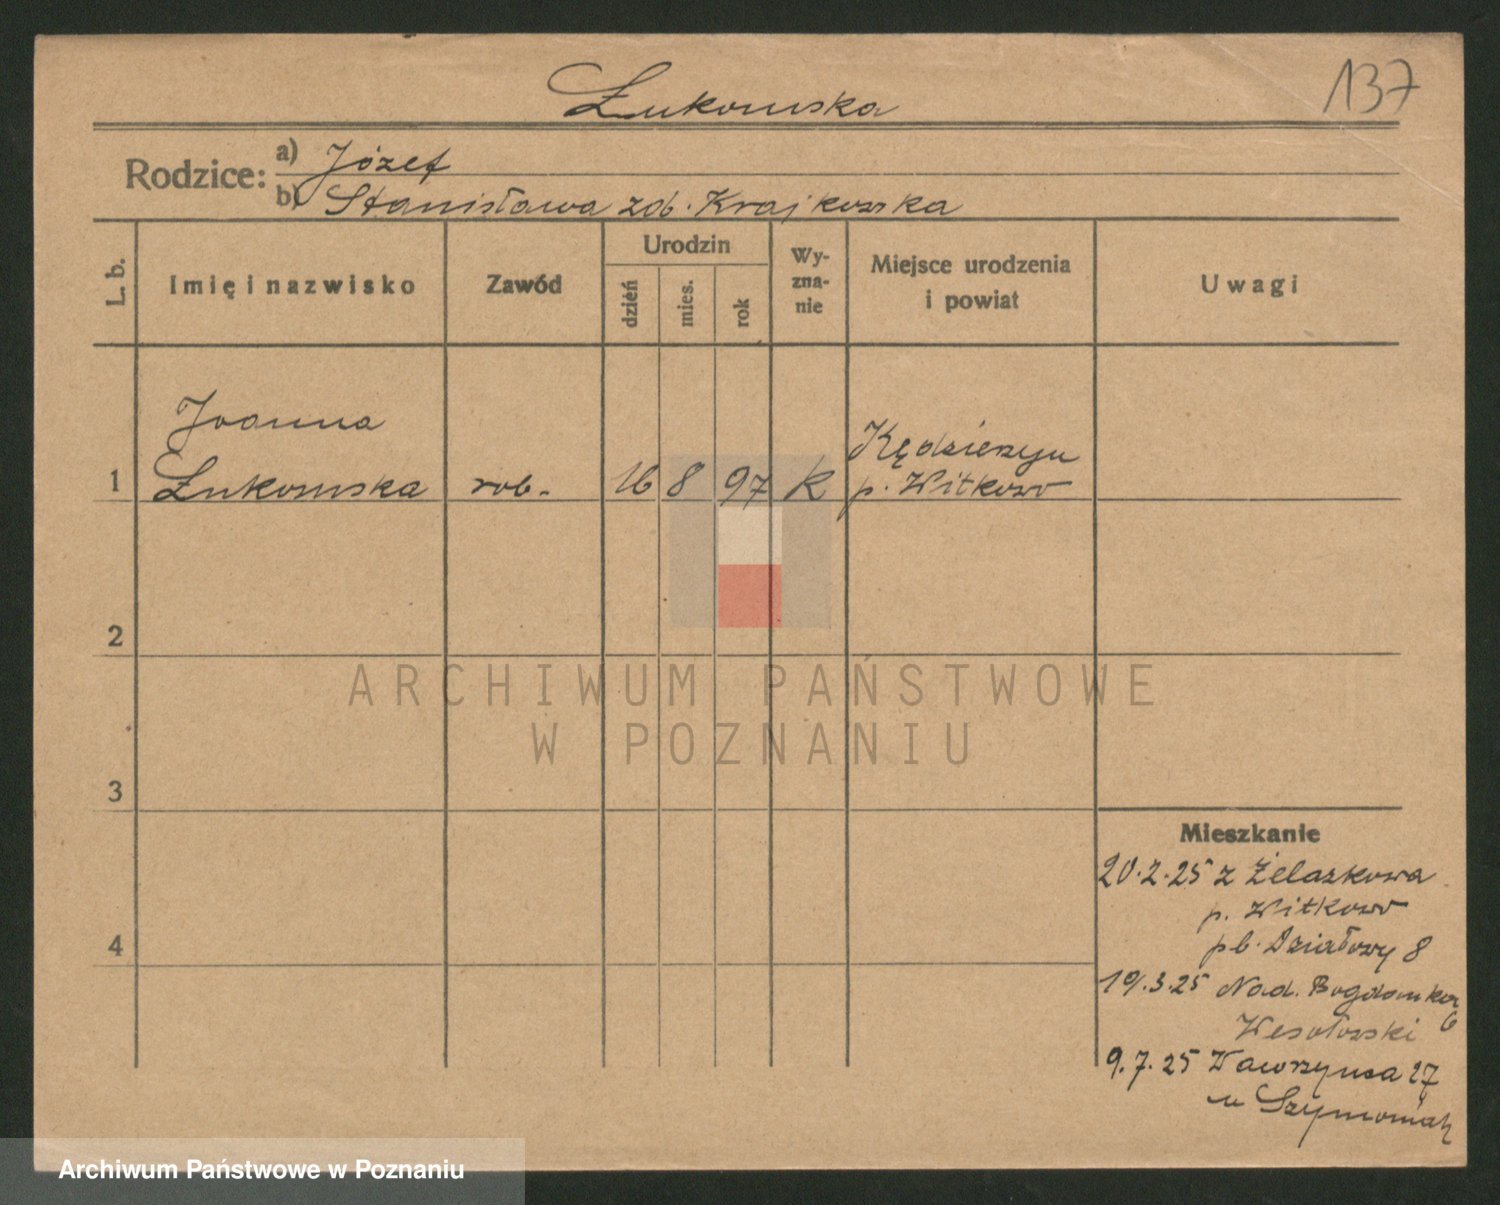 Łukomska
137
Rodzice: a) Józef
b) Stanisława zd. Krajkoska
L. b.
Imię i nazwisko
Zawód
Urodzin
dzień
mies.
rok
Wy-
zna-
nie
Miejsce urodzenia
i powiat
Uwagi
Joanna
1 Łukomska rob. 16 8 97 k
Kędzierzyn
p. Witkowo
2
3
4
ARCHIWUM PAŃSTWOWE
W POZNANIU
Mieszkanie
20.2.25 z Żelazkowa
p. Witkowo
pl. Działowy 8
19.3.25 Nad. Bogdanką
6
Wesołowski
9.7.25 Wawrzyńca 27
u Szymoniak
Archiwum Państwowe w Poznaniu